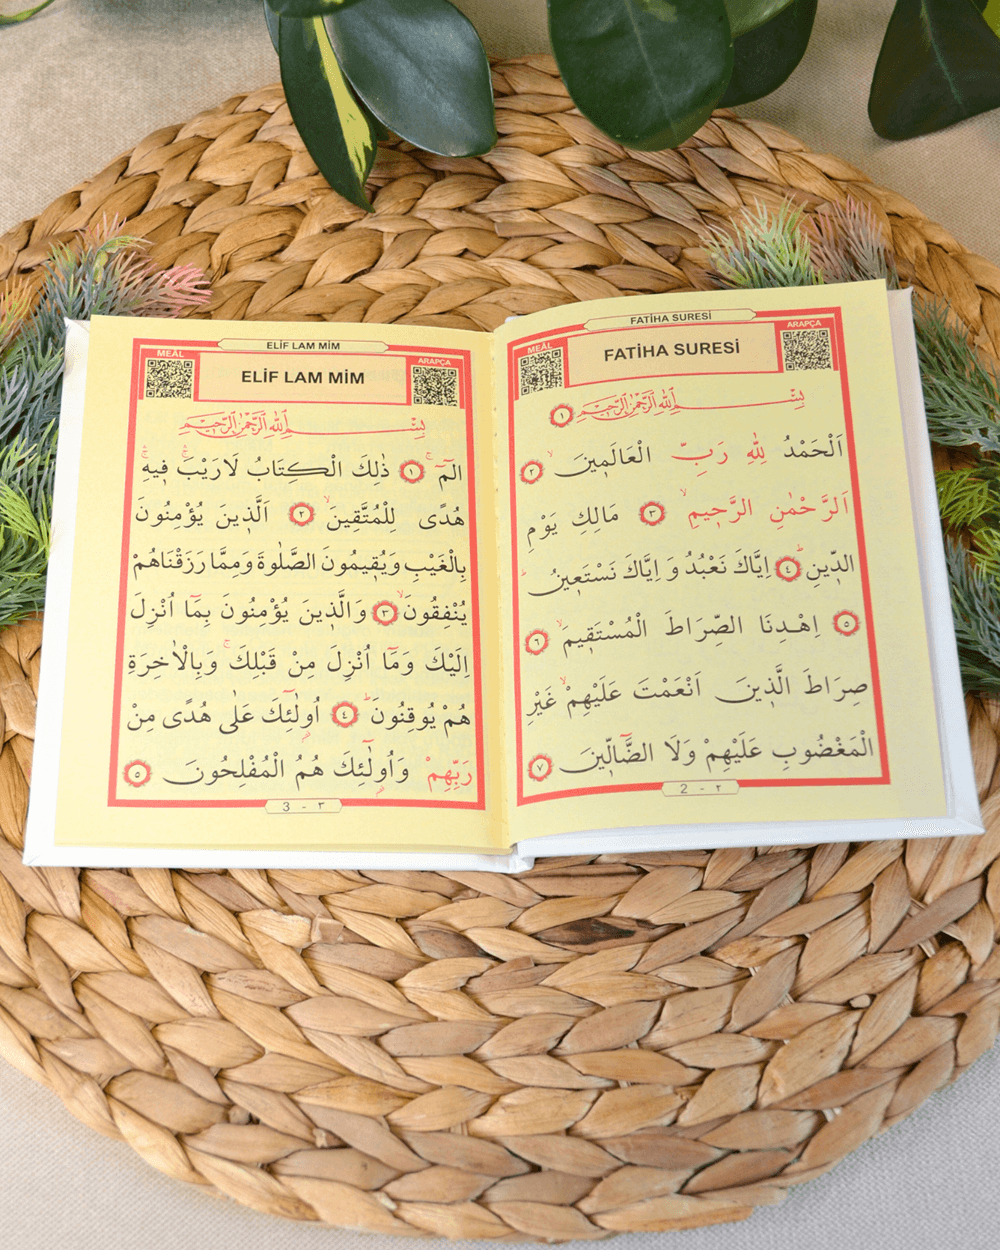 FATİHA SURESİ
MEÂL
ARAPÇA
FATİHA SURESİ
بِسْمِ اللّٰهِ الرَّحْمٰنِ الرَّحِيمِ ١
اَلْحَمْدُ لِلّٰهِ رَبِّ الْعَالَمِينَ ٢
اَلرَّحْمٰنِ الرَّحِيمِ ٣ مَالِكِ يَوْمِ
الدِّينِ ٤ اِيَّاكَ نَعْبُدُ وَ اِيَّاكَ نَسْتَعِينُ
٥ اِهْدِنَا الصِّرَاطَ الْمُسْتَقِيمَ ٦
صِرَاطَ الَّذِينَ اَنْعَمْتَ عَلَيْهِمْ غَيْرِ
الْمَغْضُوبِ عَلَيْهِمْ وَلَا الضَّٓالِّينَ ٧
2 - ٢
ELİF LAM MİM
MEÂL
ARAPÇA
ELİF LAM MİM
بِسْمِ اللّٰهِ الرَّحْمٰنِ الرَّحِيمِ
الٓمٓ ١ ذٰلِكَ الْكِتَابُ لَارَيْبَ فِيهِ
هُدًى لِلْمُتَّقِينَ ٢ اَلَّذِينَ يُؤْمِنُونَ
بِالْغَيْبِ وَيُقِيمُونَ الصَّلٰوةَ وَمِمَّا رَزَقْنَاهُمْ
يُنْفِقُونَ ٣ وَالَّذِينَ يُؤْمِنُونَ بِمَٓا اُنْزِلَ
اِلَيْكَ وَمَٓا اُنْزِلَ مِنْ قَبْلِكَ وَبِالْاٰخِرَةِ
هُمْ يُوقِنُونَ ٤ اُولٰٓئِكَ عَلٰى هُدًى مِنْ
رَبِّهِمْ وَاُولٰٓئِكَ هُمُ الْمُفْلِحُونَ ٥
3 - ٣